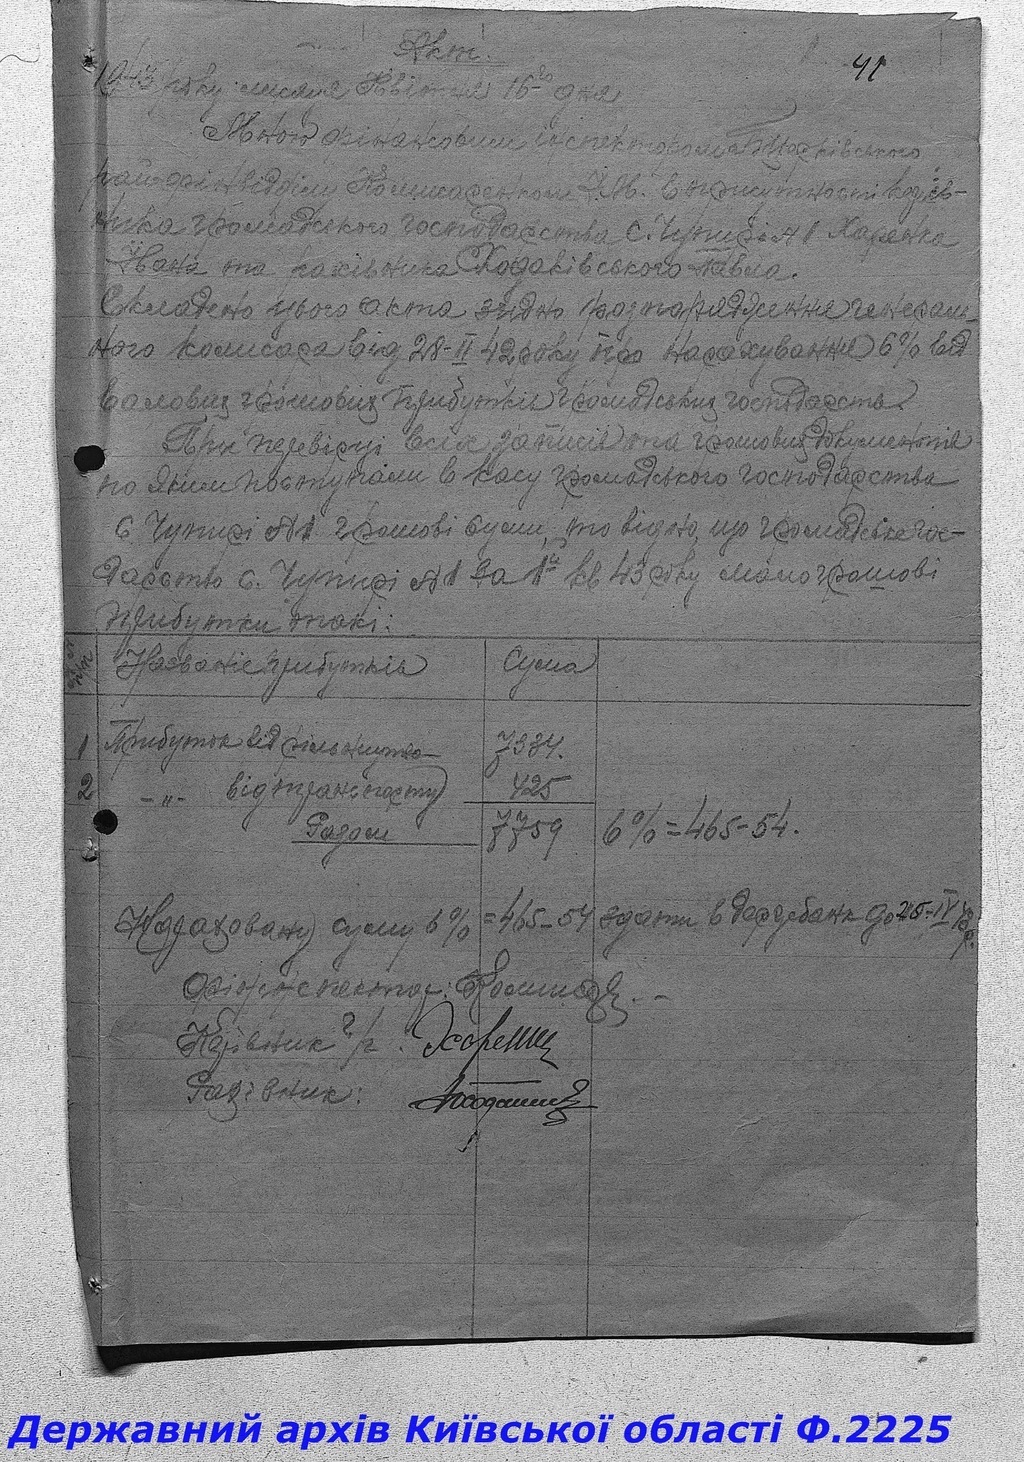 Акт.
41
1943 року місяця Квітня 15го дня
Мною фінансовим інспектором
райфінвідділу в присутності керів-
ника громадського господарства с. Чупирі №1 Харенка
Івана та рахівника Ходаківського Павла.
Складено цього акта згідно розпорядження генераль-
ного комісара від 28-II 42 року про нарахування 6% від
валових грошових прибутків громадських господарств.
При перевірці всіх записів та грошових документів
по яким поступали в касу громадського господарства
с. Чупирі №1 грошові суми, то видно, що громадське гос-
дарство с. Чупирі №1 за 1й кв 43 року мало грошові
прибутки такі:
№ п/п Названіє прибутків Сума
1 Прибуток від рільництва 7334.
2 -"- від транспорту 425
Разом 7759 6% = 465-54.
Нараховану суму 6% = 465-54 здати в Держбанк до 25-IV 43 р.
Фінінспектор:
Керівник г/г. Харенко
Рахівник:
Державний архів Київської області Ф.2225